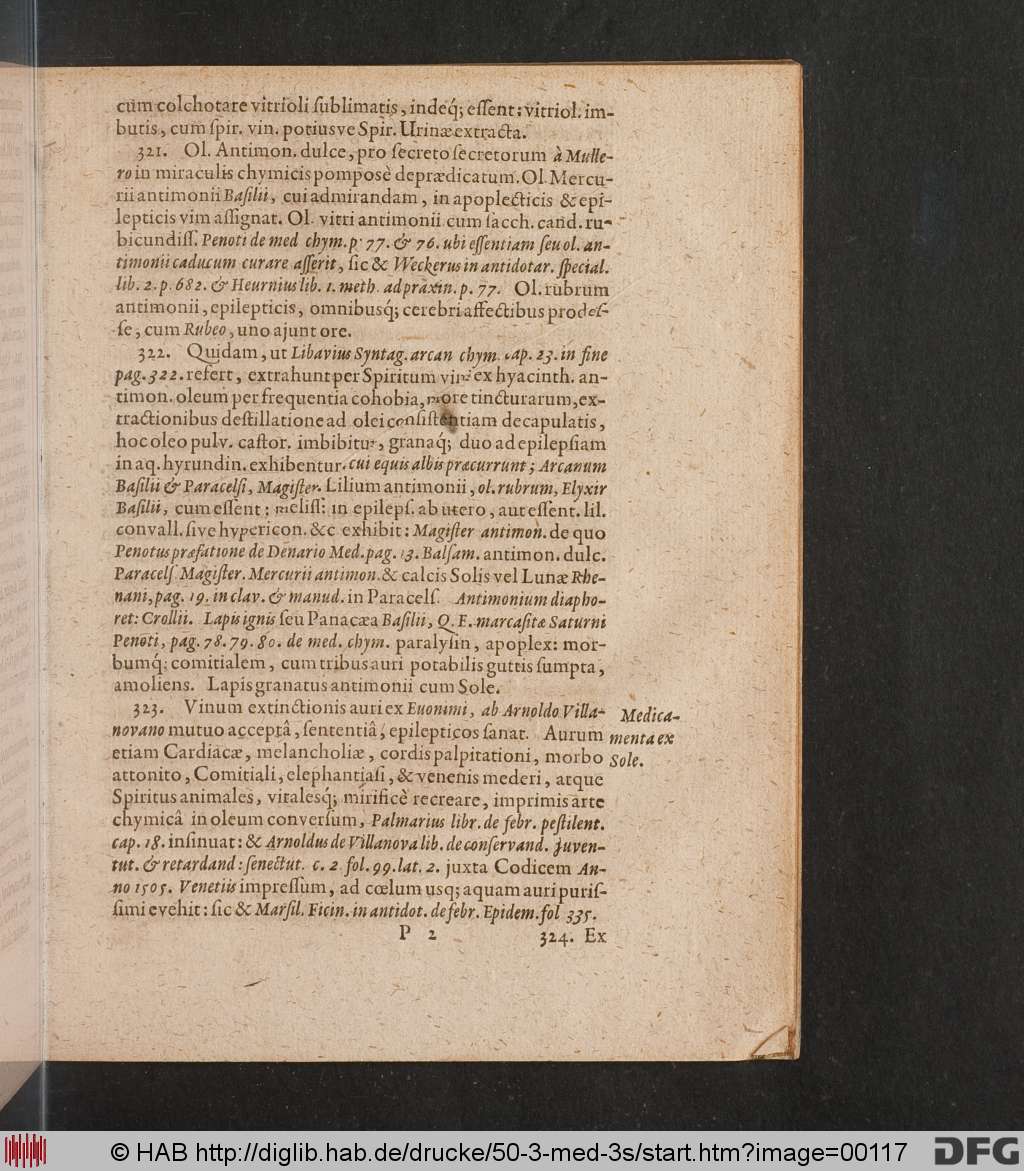 cum colchotare vitrioli ſublimatis, indeq́; eſſent: vitriol. im-
butis, cum ſpir. vin. potiusve Spir. Urinæ extracta.
321. Ol. Antimon. dulce, pro ſecreto ſecretorum à Mulle-
ro in miraculis chymicis pomposè deprædicatum. Ol. Mercu-
rii antimonii Baſilii, cui admirandam, in apoplecticis & epi-
lepticis vim aſſignat. Ol. vitri antimonii cum ſacch. cand. ru-
bicundiſſ. Penoti de med chym. p. 77. & 76. ubi eſſentiam ſeu ol. an-
timonii caducum curare aſſerit, ſic & Weckerus in antidotar. ſpecial.
lib. 2. p. 682. & Heurnius lib. 1. meth. ad praxin. p. 77. Ol. rubrum
antimonii, epilepticis, omnibusq́; cerebri affectibus prodeſ-
ſe, cum Rubeo, uno ajunt ore.
322. Quidam, ut Libavius Syntag. arcan chym. cap. 23. in fine
pag. 322. refert, extrahunt per Spiritum vini ex hyacinth. an-
timon. oleum per frequentia cohobia, more tincturarum, ex-
tractionibus deſtillatione ad olei conſiſtentiam decapulatis,
hoc oleo pulv. caſtor. imbibitur, granaq́; duo ad epilepſiam
in aq. hyrundin. exhibentur. cui equis albis præcurrunt; Arcanum
Baſilii & Paracelſi, Magiſter. Lilium antimonii, ol. rubrum, Elyxir
Baſilii, cum eſſent: meliſſ: in epilepſ. ab utero, aut eſſent. lil.
convall. ſive hypericon. &c exhibit: Magiſter antimon. de quo
Penotus præfatione de Denario Med. pag. 13. Balſam. antimon. dulc.
Paracelſ. Magiſter. Mercurii antimon. & calcis Solis vel Lunæ Rhe-
nani, pag. 19. in clav. & manud. in Paracelſ. Antimonium diapho-
ret: Crollii. Lapis ignis ſeu Panacæa Baſilii, Q. E. marcaſitæ Saturni
Penoti, pag. 78. 79. 80. de med. chym. paralyſin, apoplex: mor-
bumq́; comitialem, cum tribus auri potabilis guttis ſumpta,
amoliens. Lapis granatus antimonii cum Sole.
323. Vinum extinctionis auri ex Euonimi, ab Arnoldo Villa-
novano mutuo acceptâ, ſententiâ, epilepticos ſanat. Aurum
etiam Cardiacæ, melancholiæ, cordis palpitationi, morbo
attonito, Comitiali, elephantiaſi, & venenis mederi, atque
Spiritus animales, vitalesq́; mirificè recreare, imprimis arte
chymicâ in oleum converſum, Palmarius libr. de febr. peſtilent.
cap. 18. inſinuat: & Arnoldus de Villanova lib. de conſervand. juven-
tut. & retardand: ſenectut. c. 2 fol. 99. lat. 2. juxta Codicem An-
no 1505. Venetiis impreſſum, ad cœlum usq; aquam auri puriſ-
ſimi evehit: ſic & Marſil. Ficin. in antidot. de febr. Epidem. fol 335.
P 2 324. Ex
Medica-
menta ex
Sole.
© HAB http://diglib.hab.de/drucke/50-3-med-3s/start.htm?image=00117
DFG